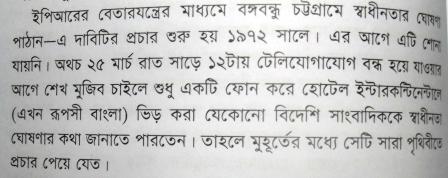 ইপিআরের বেতারযন্ত্রের মাধ্যমে বঙ্গবন্ধু চট্টগ্রামে স্বাধীনতার ঘোষণা
পাঠান—এ দাবিটির প্রচার শুরু হয় ১৯৭২ সালে। এর আগে এটি শোনা
যায়নি। অথচ ২৫ মার্চ রাত সাড়ে ১২টায় টেলিযোগাযোগ বন্ধ হয়ে যাওয়ার
আগে শেখ মুজিব চাইলে শুধু একটি ফোন করে হোটেল ইন্টারকন্টিনেন্টালে
(এখন রূপসী বাংলা) ভিড় করা যেকোনো বিদেশি সাংবাদিককে স্বাধীনতা
ঘোষণার কথা জানাতে পারতেন। তাহলে মুহূর্তের মধ্যে সেটি সারা পৃথিবীতে
প্রচার পেয়ে যেত।